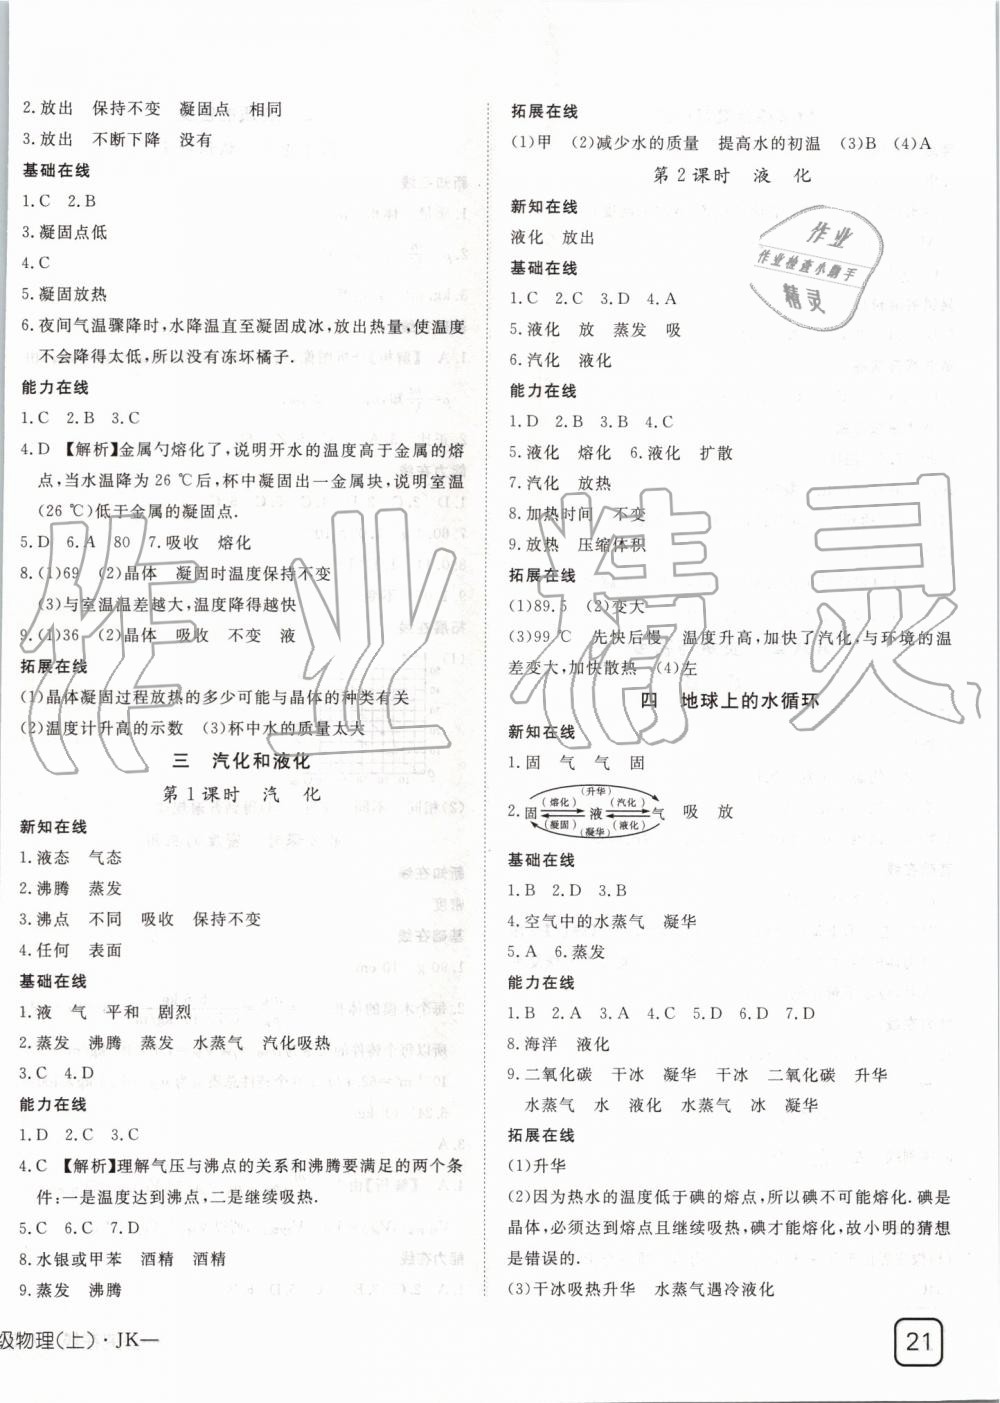 2.放出 保持不变 凝固点 相同
3.放出 不断下降 没有
基础在线
1.C 2.B
3.凝固点低
4.C
5.凝固放热
6.夜间气温骤降时,水降温直至凝固成冰,放出热量,使温度
不会降得太低,所以没有冻坏橘子.
能力在线
1.C 2.B 3.C
4.D 【解析】金属勺熔化了,说明开水的温度高于金属的熔
点,当水温降为26 ℃后,杯中凝固出一金属块,说明室温
(26 ℃)低于金属的凝固点.
5.D 6.A 80 7.吸收 熔化
8.(1)69 (2)晶体 凝固时温度保持不变
(3)与室温温差越大,温度降得越快
9.(1)36 (2)晶体 吸收 不变 液
拓展在线
(1)晶体凝固过程放热的多少可能与晶体的种类有关
(2)温度计升高的示数 (3)杯中水的质量太大
三 汽化和液化
第1课时 汽 化
新知在线
1.液态 气态
2.沸腾 蒸发
3.沸点 不同 吸收 保持不变
4.任何 表面
基础在线
1.液 气 平和 剧烈
2.蒸发 沸腾 蒸发 水蒸气 汽化吸热
3.C 4.D
能力在线
1.D 2.C 3.C
4.C 【解析】理解气压与沸点的关系和沸腾要满足的两个条
件:一是温度达到沸点,二是继续吸热.
5.C 6.C 7.D
8.水银或甲苯 酒精 酒精
9.蒸发 沸腾
级物理(上)·JK—
拓展在线
(1)甲 (2)减少水的质量 提高水的初温 (3)B (4)A
第2课时 液 化
新知在线
液化 放出
基础在线
1.C 2.C 3.D 4.A
5.液化 放 蒸发 吸
6.汽化 液化
能力在线
1.D 2.B 3.D 4.C
5.液化 熔化 6.液化 扩散
7.汽化 放热
8.加热时间 不变
9.放热 压缩体积
拓展在线
(1)89.5 (2)变大
(3)99 ℃ 先快后慢 温度升高,加快了汽化,与环境的温
差变大,加快散热 (4)左
四 地球上的水循环
新知在线
1.固 气 气 固
(升华)
(熔化) (汽化)
2.固 液 气 吸 放
(凝固) (液化)
(凝华)
基础在线
1.B 2.D 3.B
4.空气中的水蒸气 凝华
5.A 6.蒸发
能力在线
1.B 2.A 3.A 4.C 5.D 6.D 7.D
8.海洋 液化
9.二氧化碳 干冰 凝华 干冰 二氧化碳 升华
水蒸气 水 液化 水蒸气 冰 凝华
拓展在线
(1)升华
(2)因为热水的温度低于碘的熔点,所以碘不可能熔化.碘是
晶体,必须达到熔点且继续吸热,碘才能熔化,故小明的猜想
是错误的.
(3)干冰吸热升华 水蒸气遇冷液化
21
作业
作业检查小助手
精灵
作业精灵